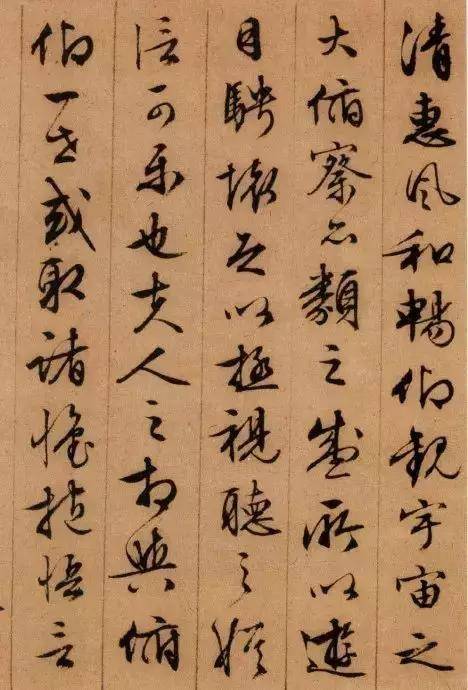 清惠風和暢仰觀宇宙之
大俯察品類之盛所以遊
目騁懷足以極視聽之娛
信可樂也夫人之相與俯
仰一世或取諸懷抱悟言